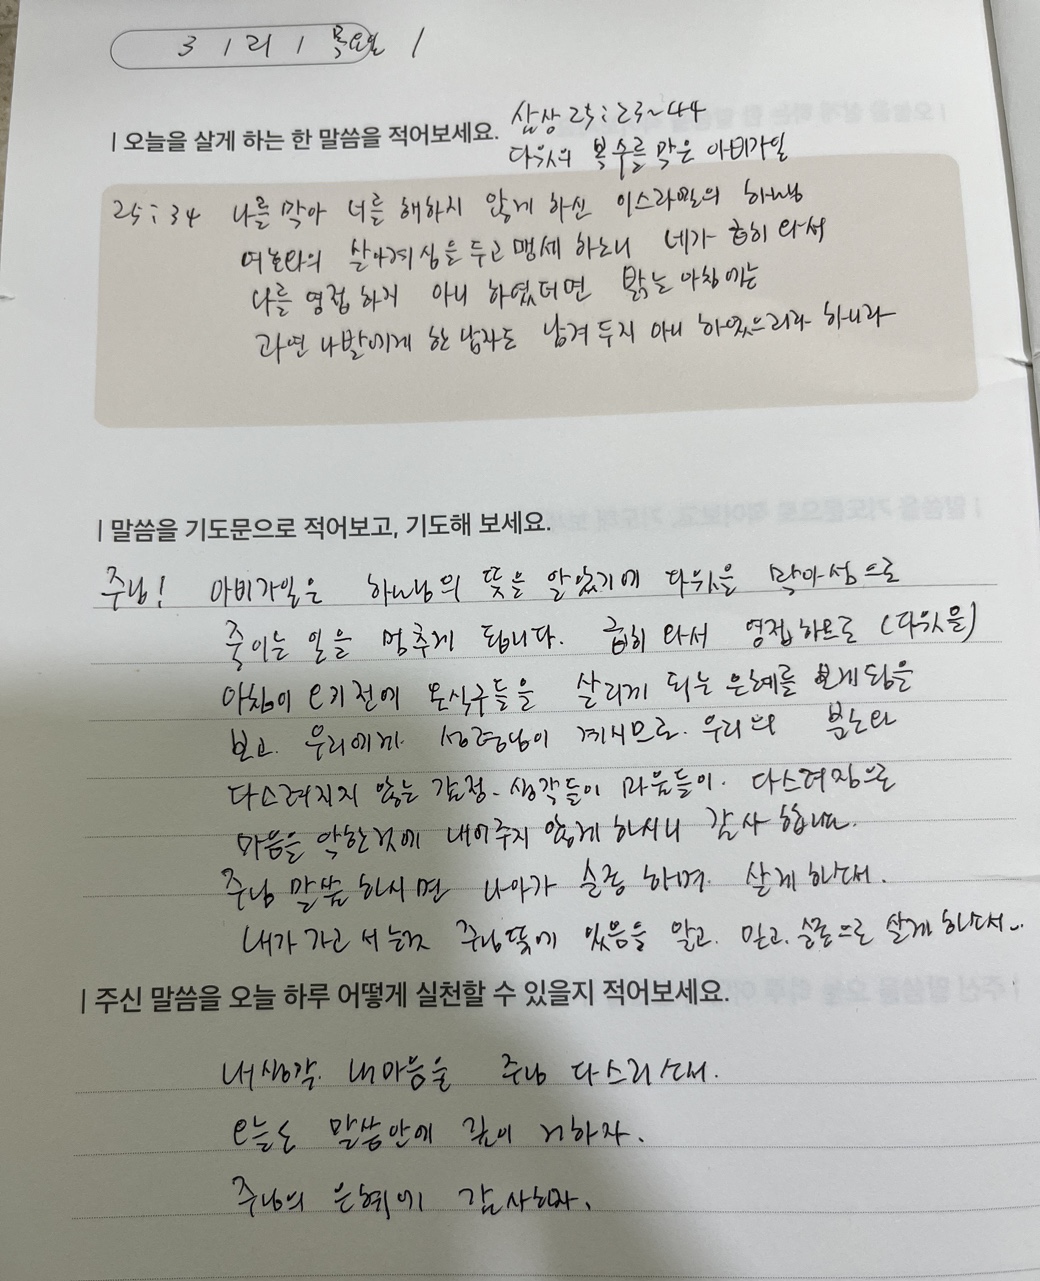 3 / 21 / 목요일 /
삼상 25:23~44
| 오늘을 살게 하는 한 말씀을 적어보세요.
다윗의 복수를 막은 아비가일
25:34 나를 막아 너를 해하지 않게 하신 이스라엘의 하나님
여호와의 살아계심을 두고 맹세 하노니 네가 급히 와서
나를 영접 하지 아니 하였더면 밝는 아침에는
과연 나발에게 한 남자도 남겨 두지 아니 하였으리라 하니라
| 말씀을 기도문으로 적어보고, 기도해 보세요.
주님! 아비가일은 하나님의 뜻을 알았기에 다윗을 막아섬으로
죽이는 일을 멈추게 됩니다. 급히 와서 영접하므로 (다윗을)
아침이 오기전에 온식구들을 살리게 되는 은혜를 보게됨을
보고. 우리에게 성령님이 계시므로. 우리의 분노와
다스려지지 않는 감정. 생각들이 마음들이. 다스려짐으로
마음을 악한것에 내어주지 않게 하시니 감사 합니다.
주님 말씀 하시면 나아가 순종 하며. 살게 하소서.
내가 가고 서는것 주님뜻에 있음을 알고. 믿고. 순종으로 살게 하소서..
| 주신 말씀을 오늘 하루 어떻게 실천할 수 있을지 적어보세요.
내생각. 내마음을 주님 다스리소서.
오늘도 말씀안에 깊이 거하자.
주님의 은혜에 감사하자.